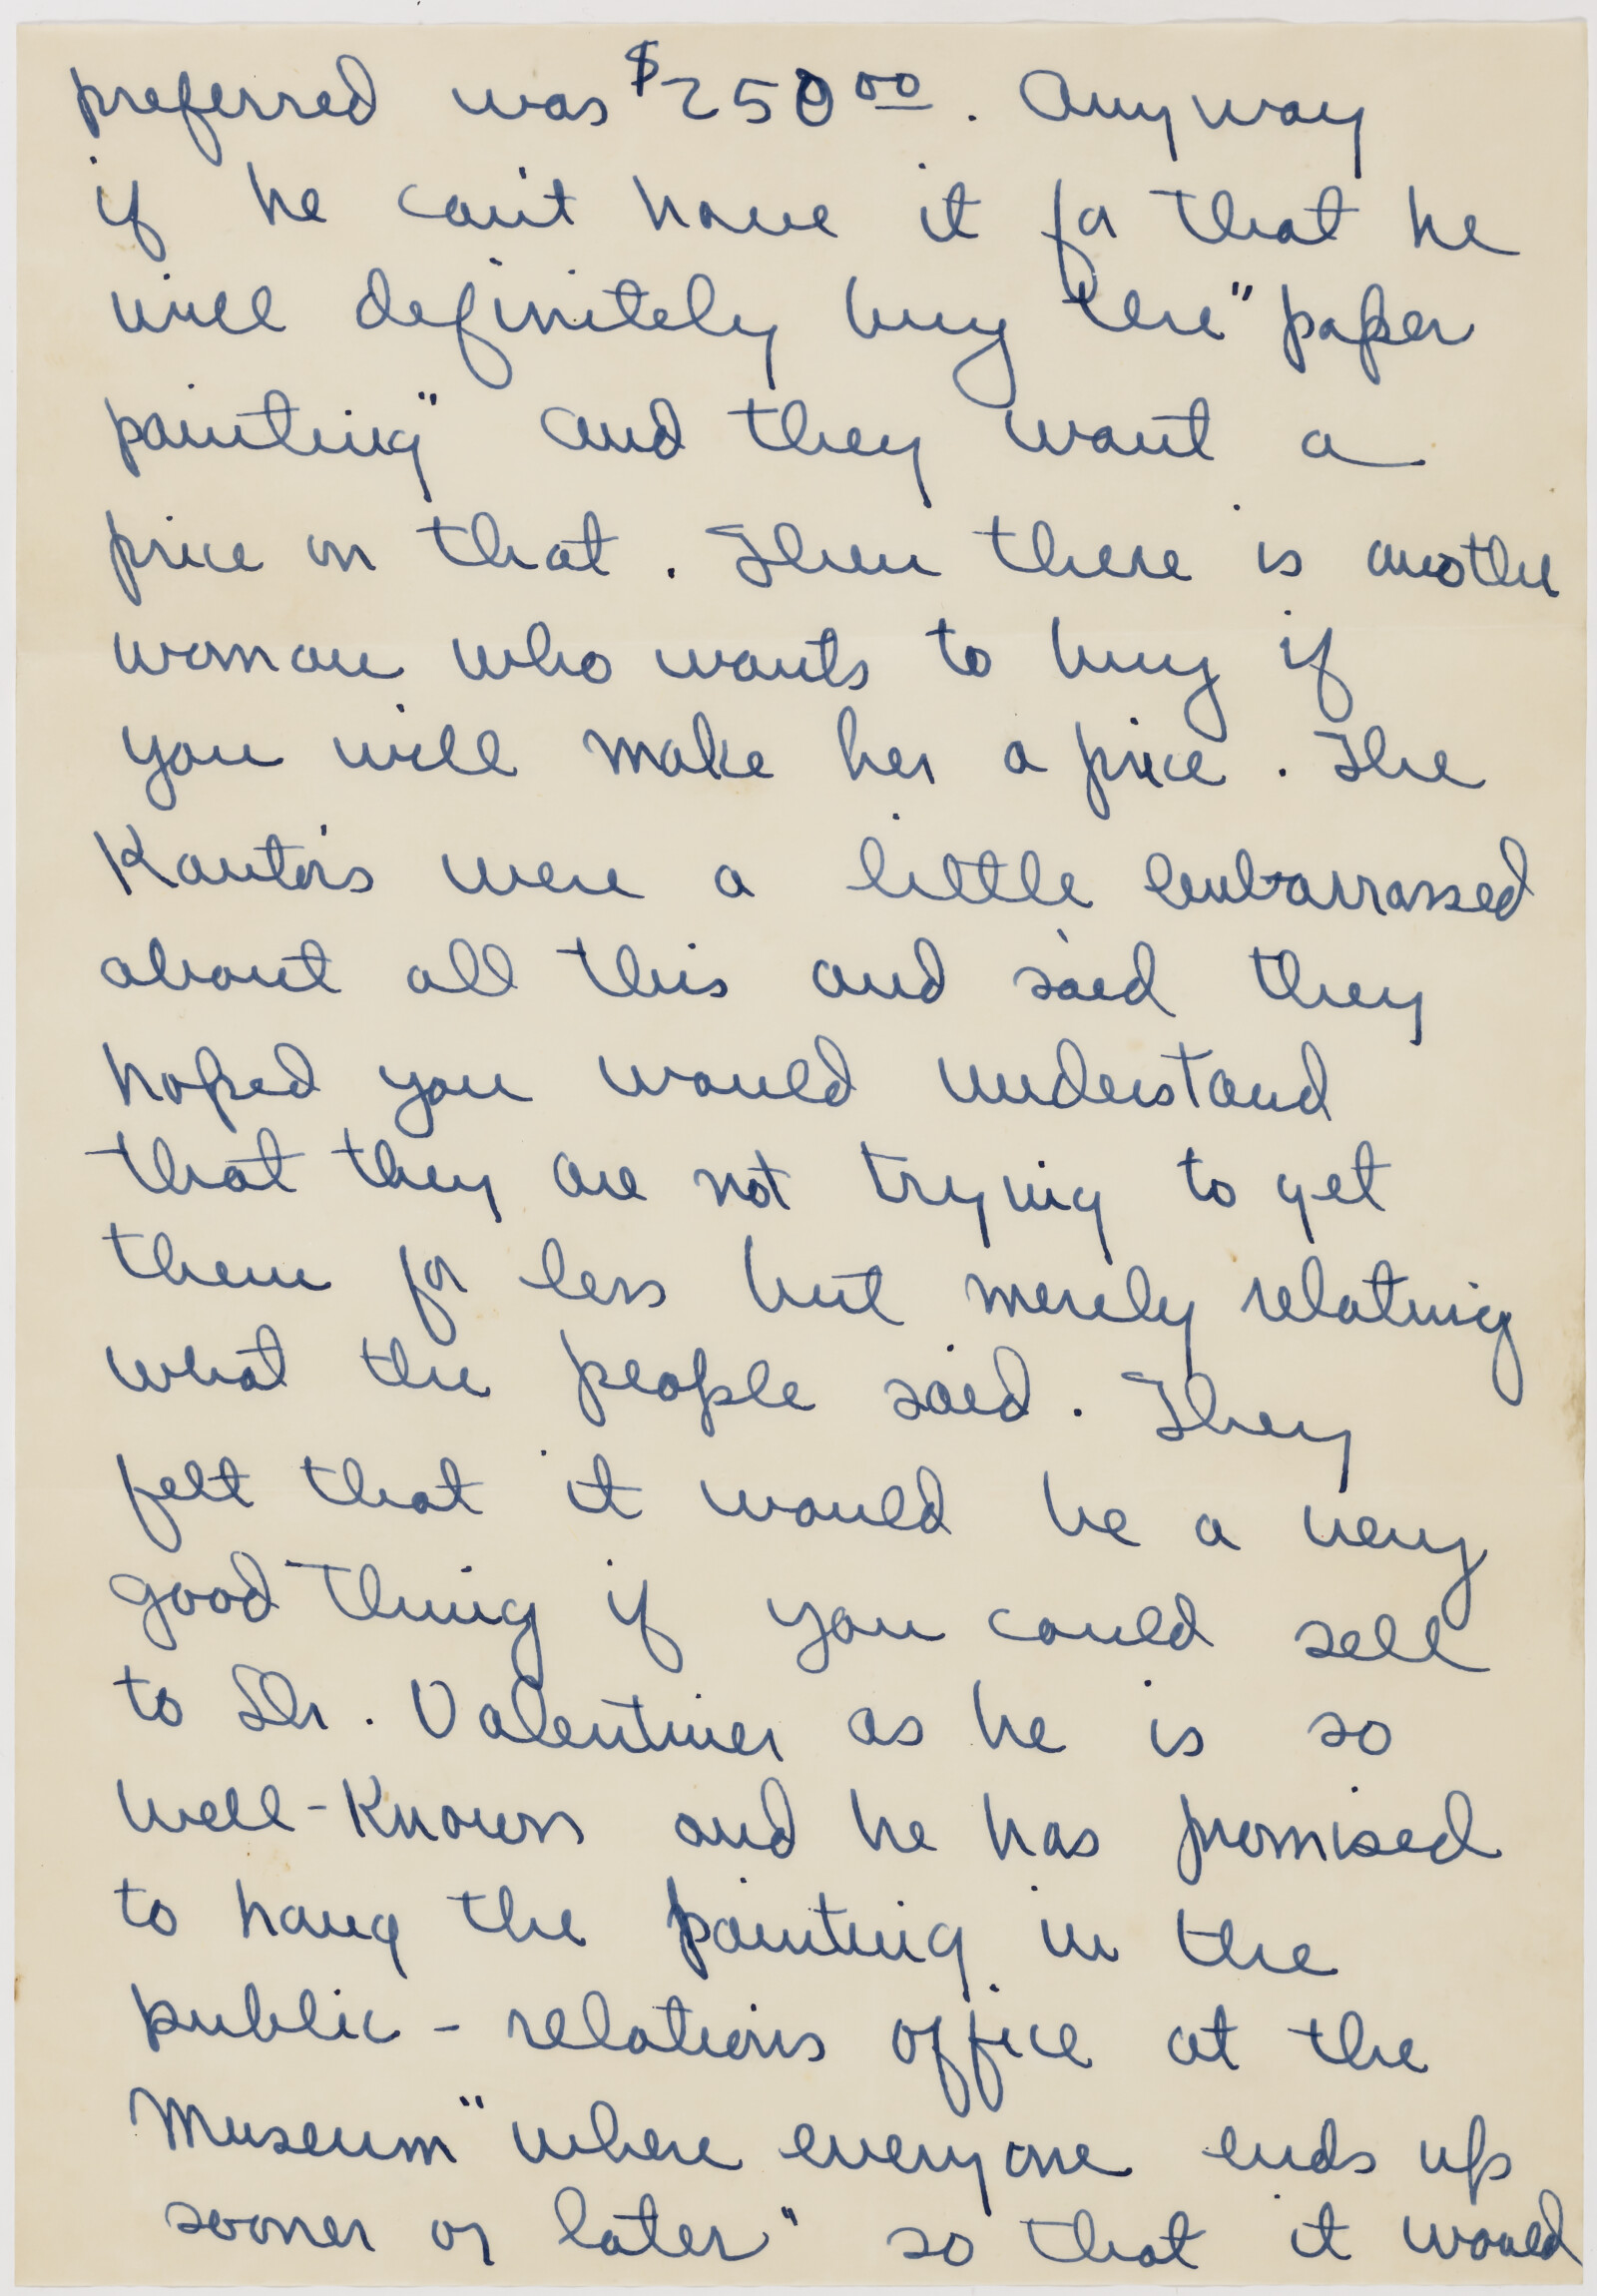 preferred was $250.00. Anyway
if he can't have it for that he
will definitely buy the "paper
painting" and they want a
price on that. Then there is another
woman who wants to buy if
you will make her a price. The
Kantors were a little embarrassed
about all this and said they
hoped you would understand
that they are not trying to get
them for less but merely relating
what the people said. They
felt that it would be a very
good thing if you could sell
to Dr. Valentiner as he is so
well-known and he has promised
to hang the painting in the
public-relations office at the
Museum "where everyone ends up
sooner or later" so that it would